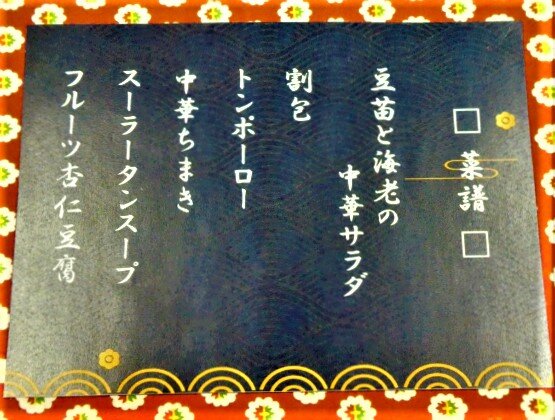 □ 菜譜 □
豆苗と海老の
中華サラダ
割包
トンポーロー
中華ちまき
スーラータンスープ
フルーツ杏仁豆腐